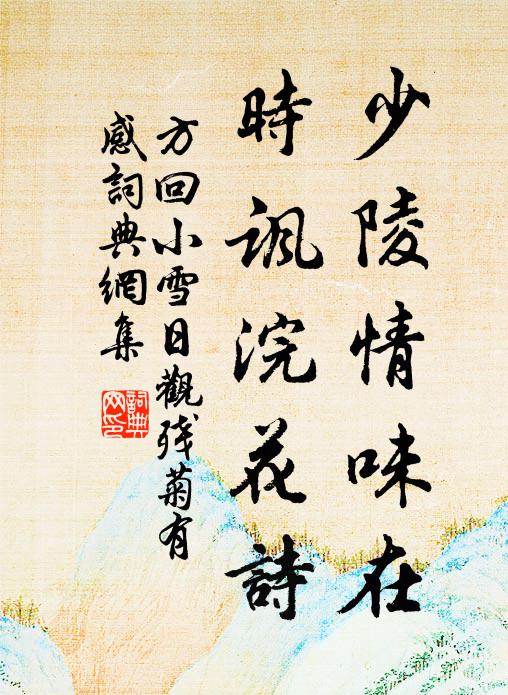 少陵情味在
時諷浣花詩
方回小雪日觀残菊有
感詞典網集
詞典
网印